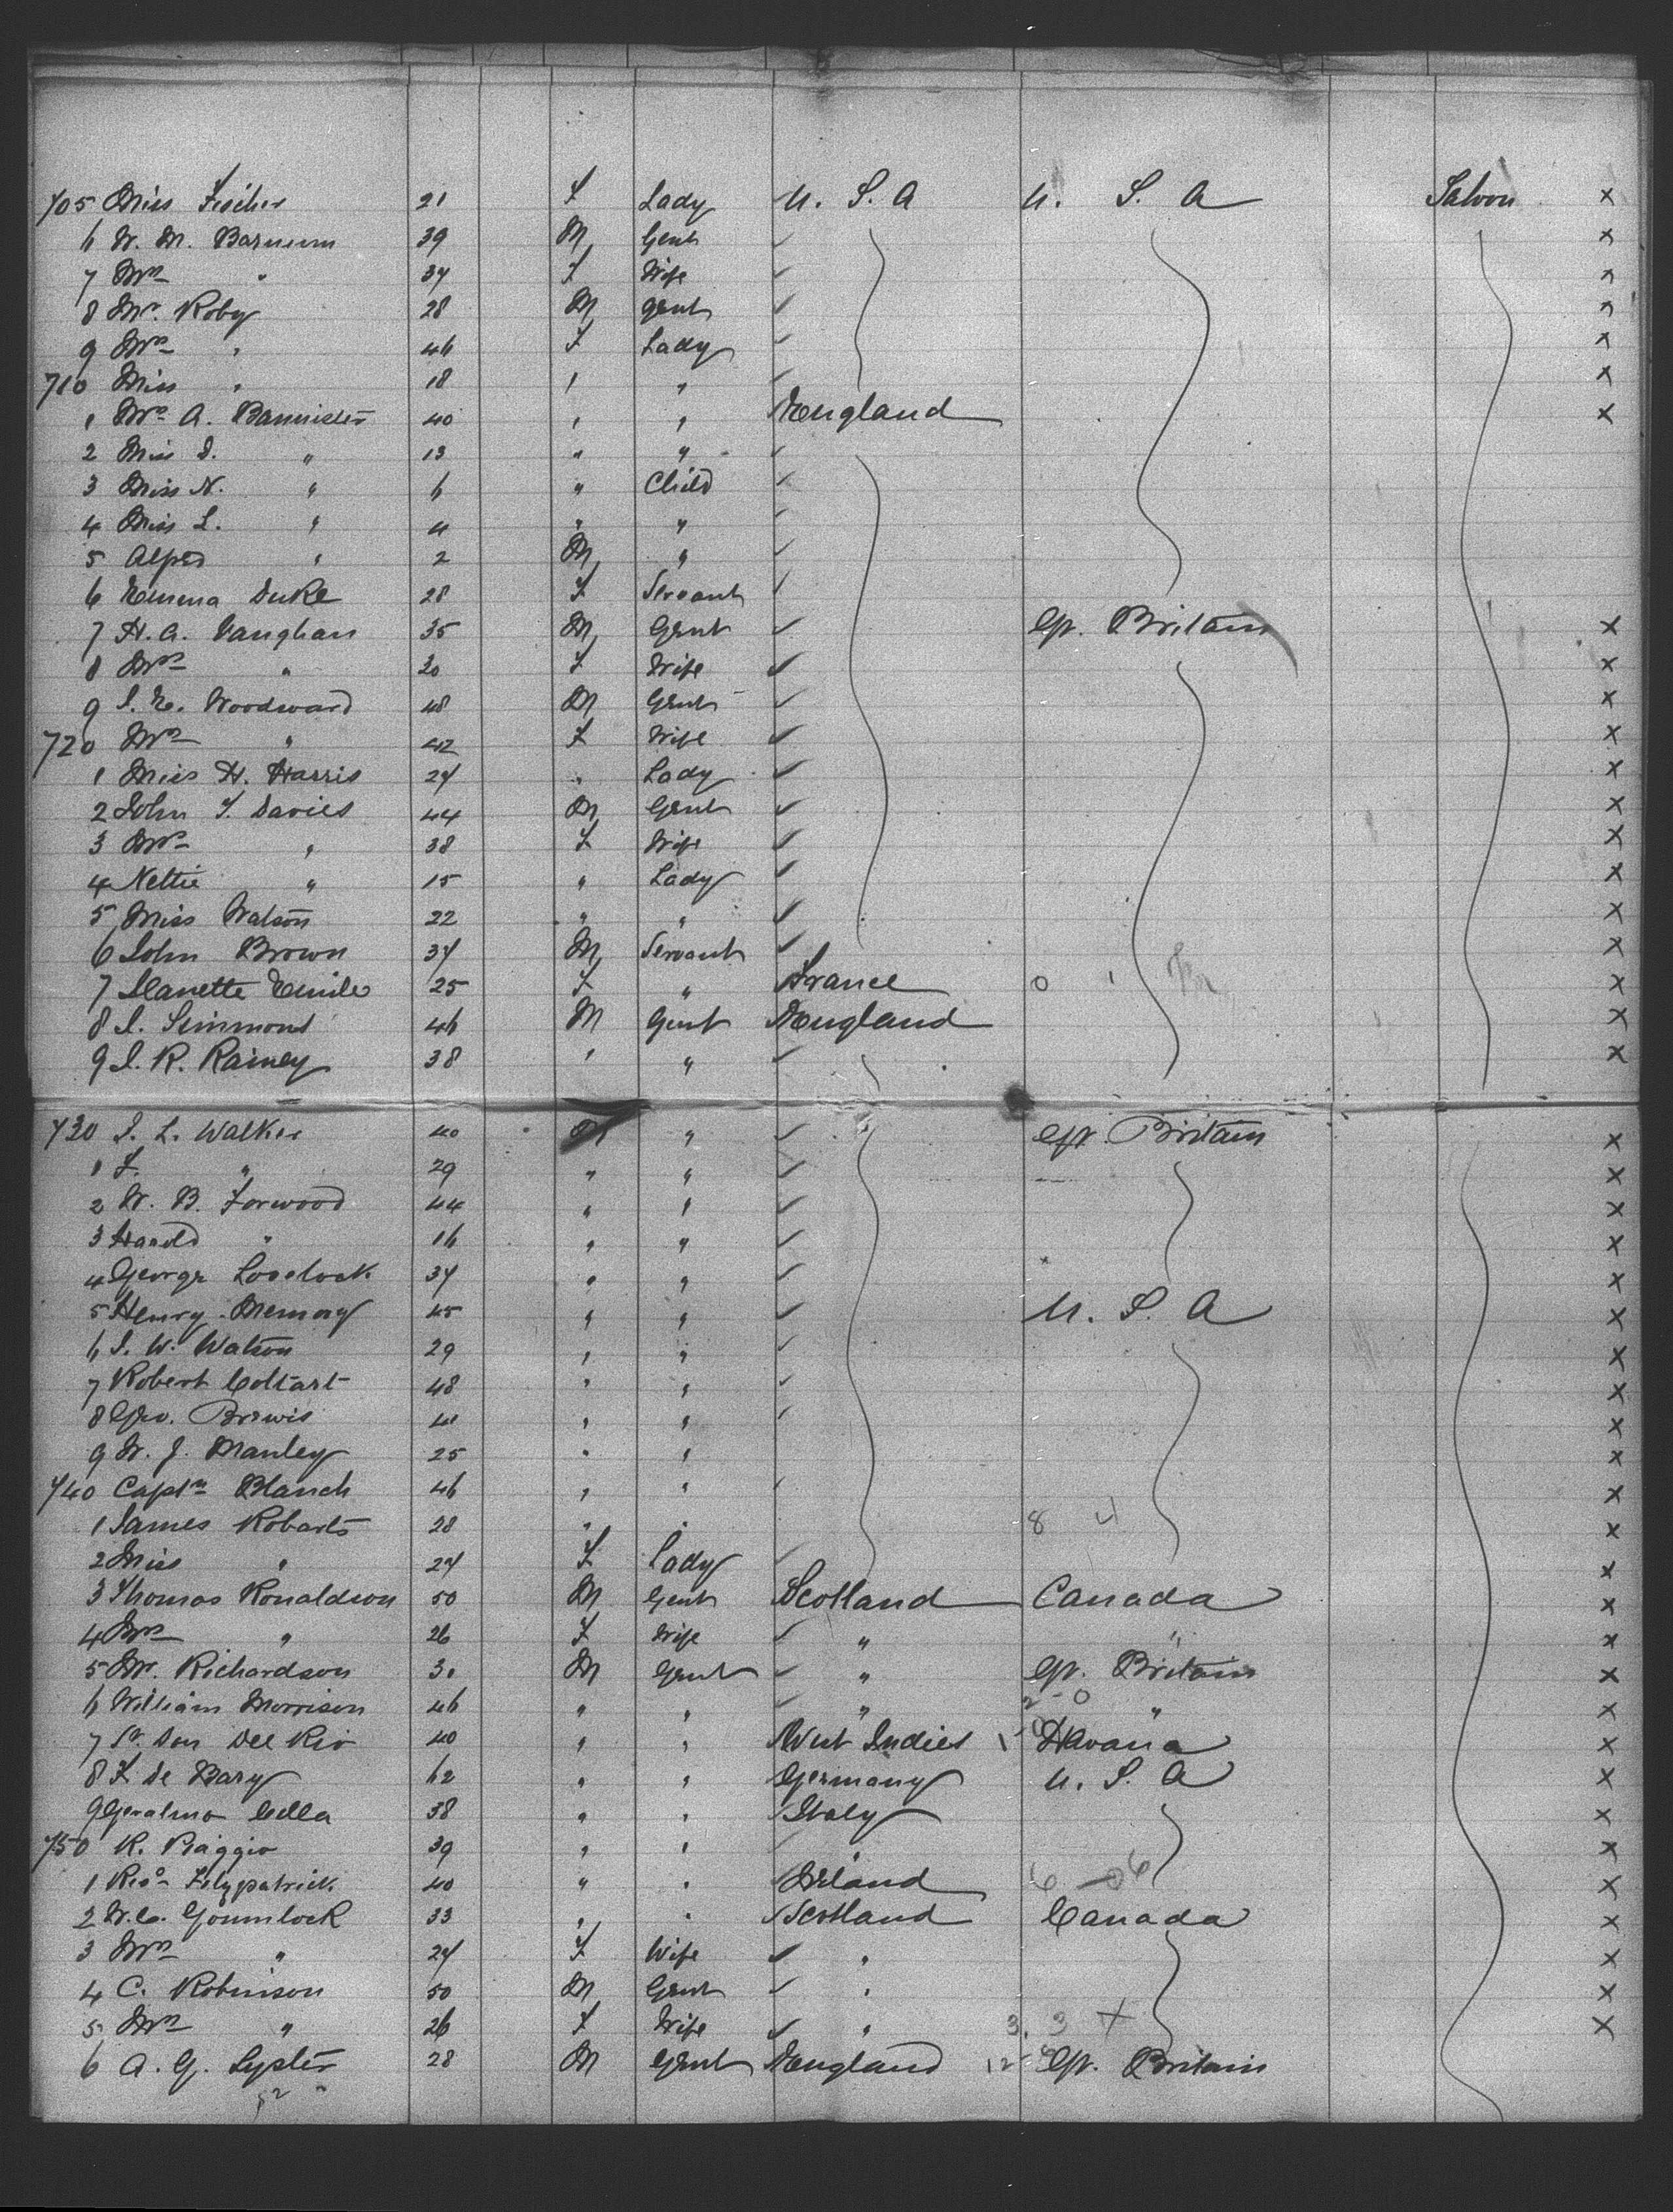 705 Miss Fischer 21 F Lady U. S. A U. S. A Saloon x
6 W. M. Barnum 39 M Gent ✓ x
7 Mrs " 34 F Wife ✓ x
8 Mr. Roby 28 M gent ✓ x
9 Mrs " 46 F Lady ✓ x
710 Miss " 18 " " ✓ x
1 Mrs A. Bannister 40 " " England x
2 Miss D. " 13 " " ✓
3 Miss N. " 6 " Child ✓
4 Miss L. " 4 " " ✓
5 Alfred " 2 M " ✓
6 Emma Duke 28 F Servant ✓
7 H. A. Vaughan 35 M Gent ✓ Gt. Britain x
8 Mrs " 30 F Wife ✓ x
9 J. E. Woodward 48 M Gent ✓ x
720 Mrs " 42 F Wife ✓ x
1 Miss H. Harris 24 " Lady ✓ x
2 John T. Davies 44 M Gent ✓ x
3 Mrs " 38 F Wife ✓ x
4 Nettie " 15 " Lady ✓ x
5 Miss Watson 22 " " ✓ x
6 John Brown 34 M Servant ✓ x
7 Emile 25 F " France 0 1 x
8 J. Simmons 46 M Gent England x
9 J. R. Rainey 38 " " ✓ x
730 J. L. Walker 40 M " ✓ Gt. Britain x
1 F. " 29 " " ✓ x
2 W. B. Forwood 44 " " ✓ x
3 Harold " 16 " " ✓ x
4 George Lovelock 34 " " ✓ x
5 Henry Memory 45 " " ✓ U. S. A x
6 J. W. Watson 29 " " ✓ x
7 Robert Coltart 48 " " ✓ x
8 Geo. Brewis 41 " " ✓ x
9 W. J. Manley 25 " " x
740 Captn Blanch 46 " " ✓ x
1 James Robarts 28 " " 8 4 x
2 Miss " 24 F Lady ✓ x
3 Thomas Ronaldson 50 M Gent Scotland Canada x
4 Mrs " 26 F Wife ✓ " " x
5 Mr. Richardson 31 M Gent ✓ " Gt. Britain x
6 William Morrison 46 " " ✓ " 2-0 " x
7 Sr. Don Del Rio 40 " " West Indies Havana x
8 F. De Bary 62 " " Germany U. S. A x
9 Cella 38 " " Italy x
750 R. Piaggio 39 " " ✓ " x
1 Fitzpatrick 40 " " Ireland 6 6 x
2 W. C. Gounlock 33 " " Scotland Canada x
3 Mrs " 24 F Wife ✓ " x
4 C. Robinson 50 M Gent ✓ " x
5 Mrs " 26 F Wife ✓ " 3. 3 x
6 A. G. Lyster 28 M Gent England 12 Gt. Britain
52 "